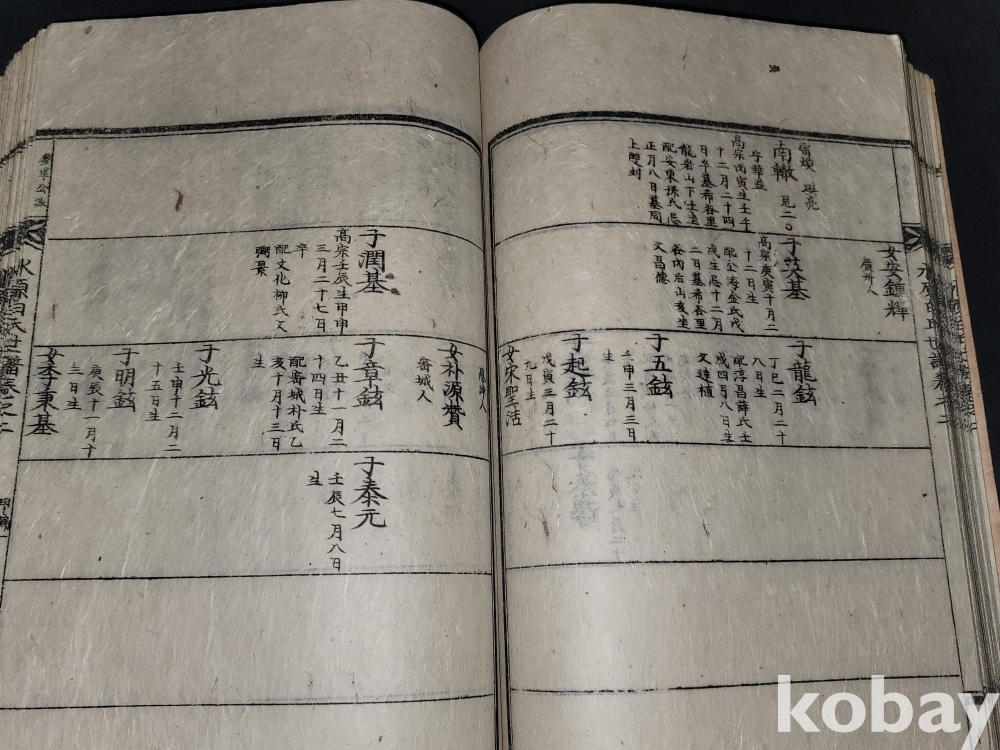 南轍
見二〇
字華益
高宗丙寅生壬午
十二月二十四
日卒墓希谷里
龍岩山下壬坐
配安東孫氏忌
正月八日墓同
上雙封
女安鍾輝
廣州人
子茨基
高宗庚寅十月二
十二日生
配金海金氏戊
戌生忌十二月
二日墓希谷里
谷内后山亥坐
父昌德
子龍鉉
丁巳二月二十
八日生
配淳昌薛氏壬
戌四月八日生
父鍾植
子五鉉
壬申三月三日
生
子起鉉
戊寅三月二十
九日生
女宋聖活
子潤基
高宗壬辰生甲申
三月二十七日
卒
配文化柳氏父
弼景
女朴源贊
密城人
子章鉉
乙丑十一月二
十四日生
配密城朴氏乙
亥十月十三日
生
子光鉉
壬申十二月二
十五日生
子明鉉
庚辰十一月十
三日生
女李秉基
子泰元
壬辰七月八日
生
水原白氏世譜卷之二
kobay